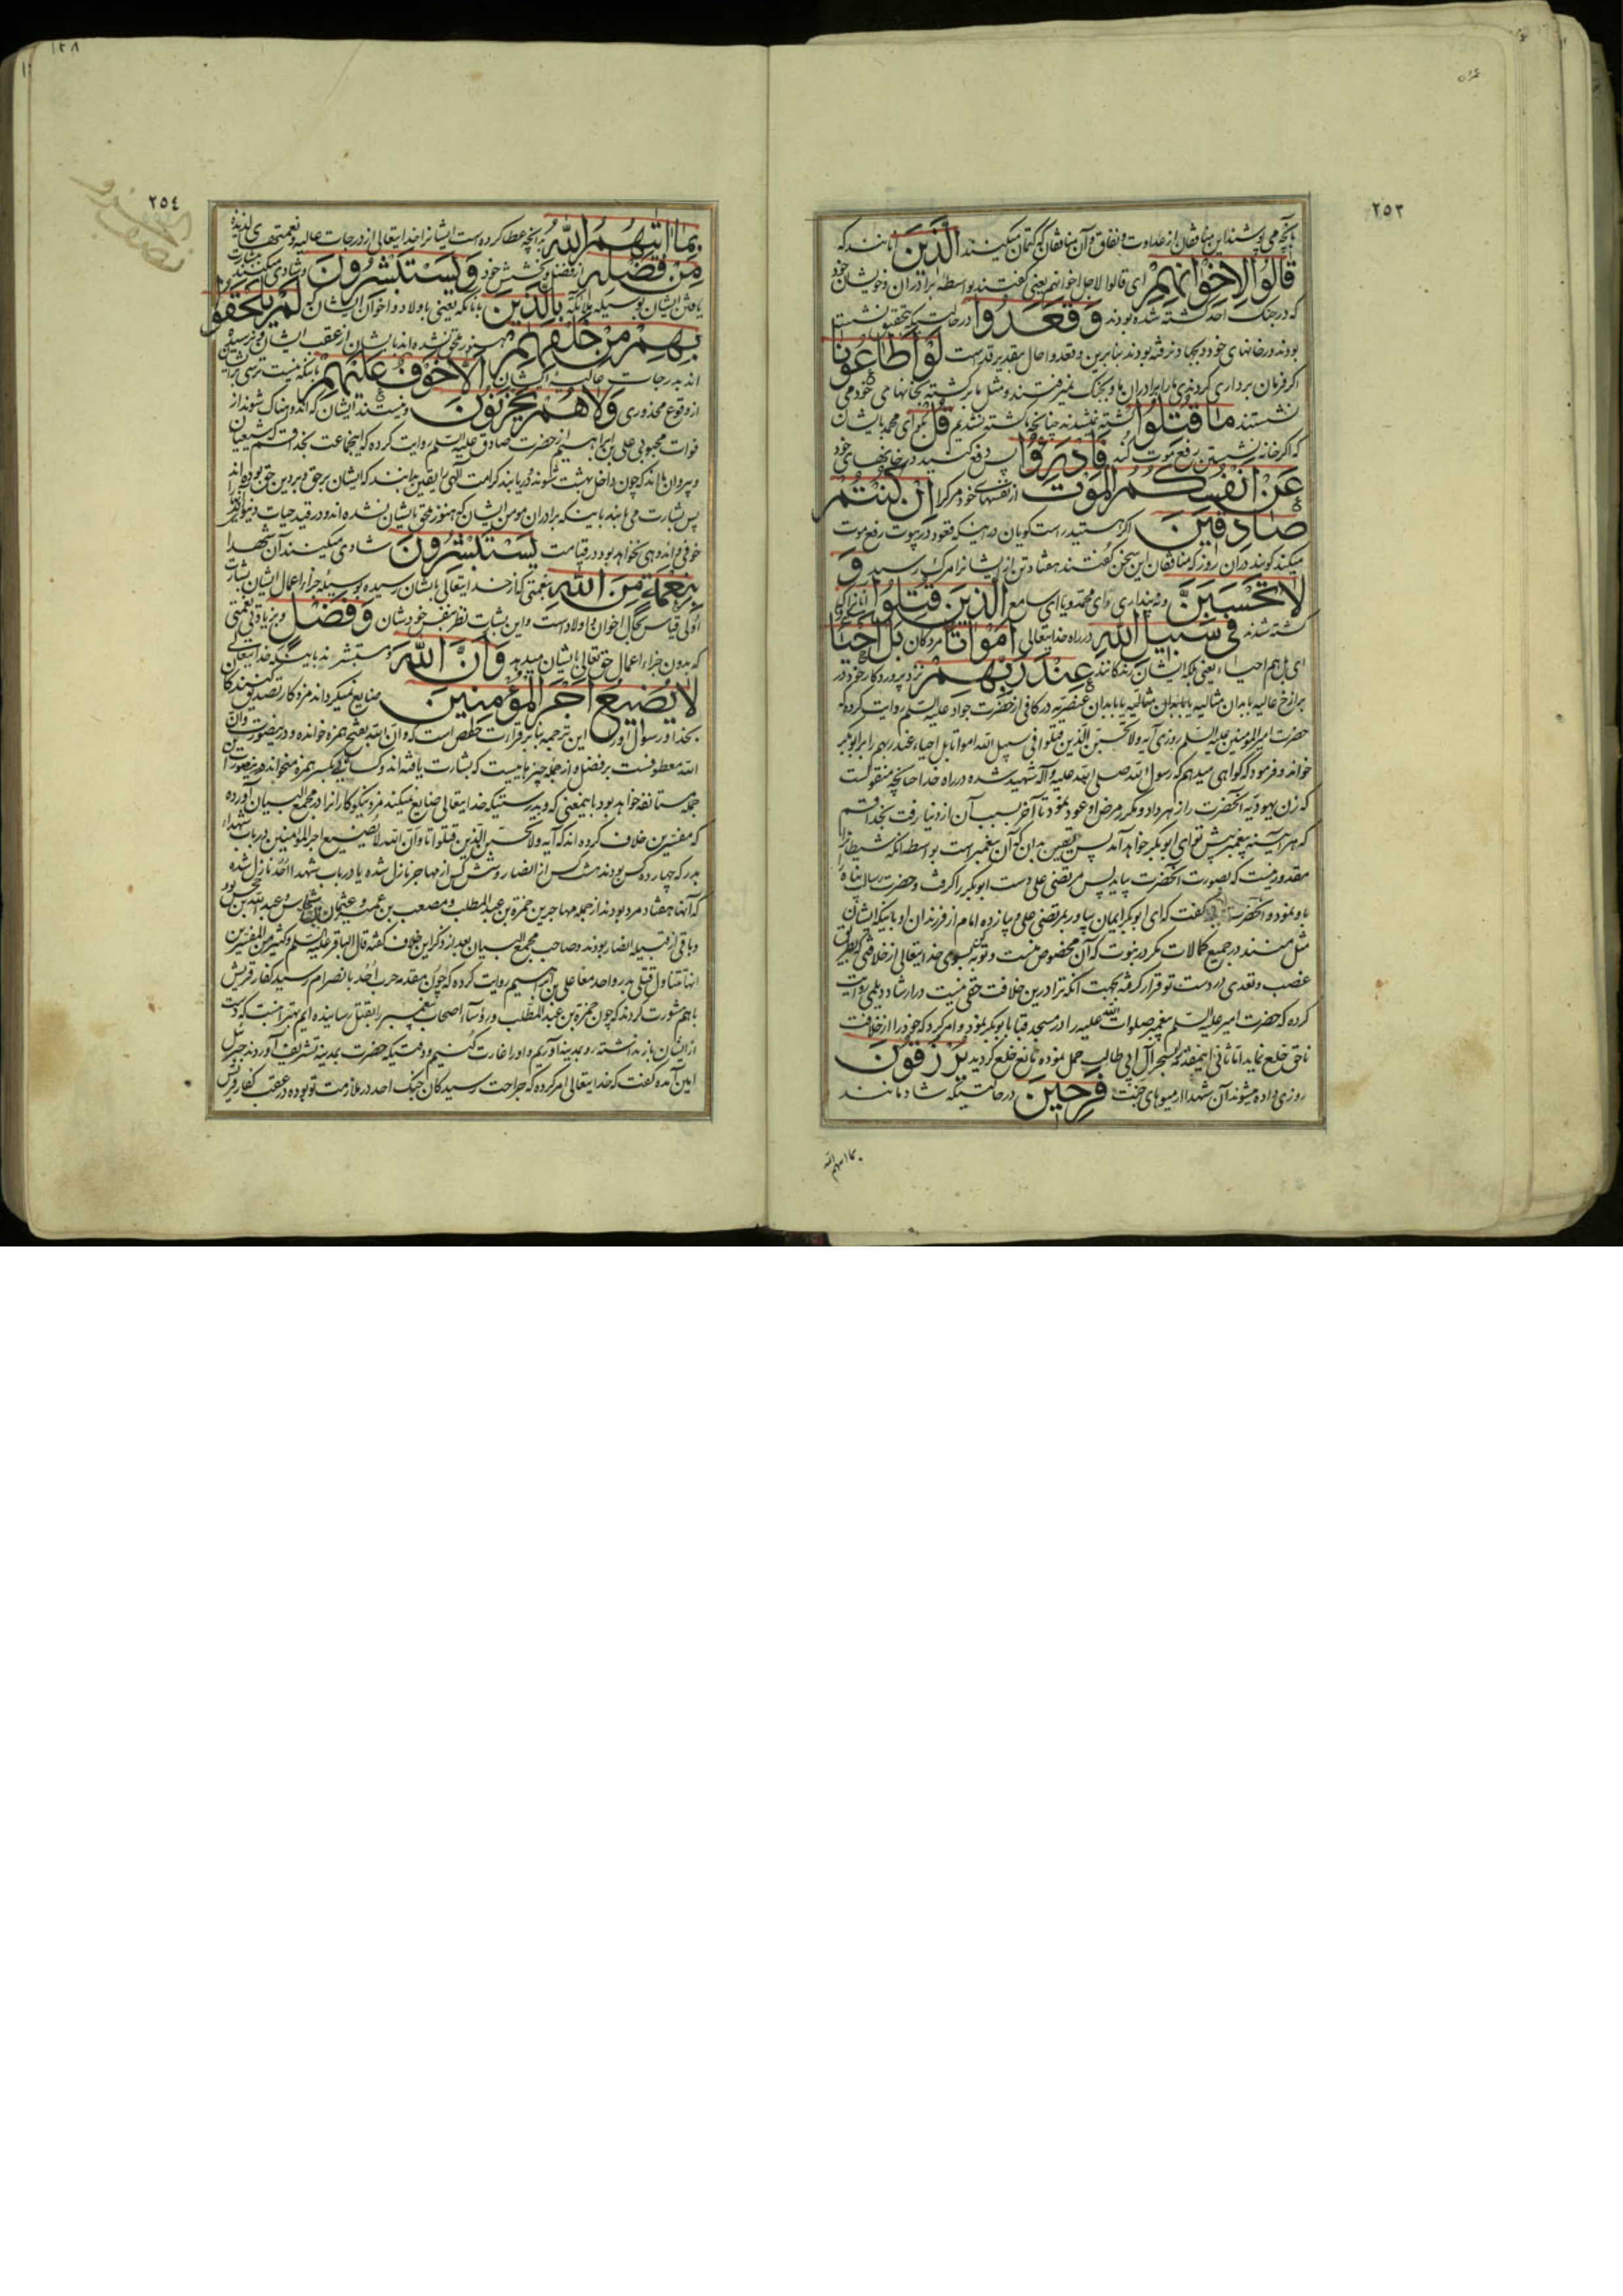 ٢٥٣
بآنچه می پوشند این منافقان از عداوت و نفاق و آن منافقان که کتمان میکنند الَّذینَ آنانند که
قالُوا لِاِخْوانِهِمْ ای قالوا لاجل اخوانهم یعنی گفتند بواسطه برادران و خویشان خود
که در جنک احد کشته شده بودند وَقَعَدُوا در حالتیکه بتحقیق نشسته
بودند در خانهای خود و بجهاد نرفته بودند بنابرین وقعدوا حال بتقدیر قد است لَوْ اَطاعُونا
اگر فرمان برداری کردندی ما را برادران ما و بجنک نمیرفتند و مثل ما برکشته بخانهای خود می
نشستند ما قُتِلُوا کشته نمیشدند چنانچه ما کشته نشدیم قُلْ بگو ای محمد بایشان
که اگر خانه نشستن رفع موت کند فَادْرَؤُا پس دفع کنید در خانهای خود
عَنْ اَنْفُسِکُمُ الْمَوْتَ از نفسهای خود مرک را اِنْ کُنْتُمْ
صادِقینَ اگر هستید راست گویان در اینکه قعود در بیوت رفع موت
میکند گویند در آن روز که منافقان این سخن گفتند هفتاد تن از ایشانرا مرک رسید وَ
لا تَحْسَبَنَّ و نه پنداری ای محمد و یا ای سامع الَّذینَ قُتِلُوا آنانرا که
کشته شدند فی سَبیلِ اللّهِ در راه خدایتعالی اَمْواتًا مردکان بَلْ اَحْیاءٌ
ای بل هم احیاء یعنی بلکه ایشان زندکانند عِنْدَ رَبِّهِمْ نزد پروردکار خود در
برازخ عالیه بابدان مثالیه یا بابدان عنصریه در کافی از حضرت جواد علیه السلم روایت کرده که
حضرت امیر المومنین علیه السلم روزی آیه ولا تحسبن الذین قتلوا فی سبیل الله امواتا بل احیاء عند ربهم را بر ابوبکر
خواند و فرمود که گواهی میدهم که رسول الله صلی الله علیه و آله شهید شده در راه خدا چنانچه منقولست
که زن یهودیه آنحضرت را زهر داد و مکرر مرض او عود نمود تا آخر بسبب آن از دنیا رفت بخدا قسم
که هر آینه پیغمبر پیش تو ای ابوبکر خواهد آمد پس یقین بدان که آن پیغمبر است بواسطه آنکه شیطانرا
مقدور نیست که بصورت آنحضرت بیاید پس مرتضی علی دست ابوبکر را کرفت و حضرت رسالت پناه را
باو نمود و آنحضرت گفت که ای ابوبکر ایمان بیاور بمرتضی علی و یازده امام از فرزندان او باینکه ایشان
مثل منند در جمیع کمالات مکر در نبوت که آن مخصوص منست و توبه کن بسوی خدایتعالی از خلافتی که بطریق
غصب و تعدی در دست تو قرار کرفته بجهت آنکه ترا درین خلافت حقی نیست در ارشاد دیلمی روایت
کرده که حضرت امیر علیه السلم پیغمبر صلوات الله علیه را در مسجد قبا بابوبکر نمود و امر کرد که خود را از خلافت
ناحق خلع نماید اما ثانی اینمقدمه را بسحر آل ابی طالب حمل نموده مانع خلع کردید یُرْزَقُونَ
روزی داده میشوند آن شهدا از میوهای جنت فَرِحینَ در حالتیکه شادمانند
بما آتیهم الله
٢٥٤
بِما آتیهُمُ اللّهُ بر آنچه عطا کرده است ایشانرا خدایتعالی از درجات عالیه و نعمتهای لذیذه
مِنْ فَضْلِهِ از فضل و بخشش خود وَیَسْتَبْشِرُونَ و شادی میکنند و بشارت
یافتن ایشان بوسیله ملائکه بِالَّذینَ بآنانکه یعنی باولاد و اخوان ایشان که لَمْ یَلْحَقُوا
بِهِمْ مِنْ خَلْفِهِمْ هنوز ملحق نشده اند بایشان از عقب ایشان و نرسیده
اند بدرجات عالیه ایشان اَلّا خَوْفٌ عَلَیْهِمْ باینکه نیست ترسی بر ایشان
از وقوع محذوری وَلا هُمْ یَحْزَنُونَ و نیستند ایشان که اندوهناک شوند از
فوات محبوبی علی بن ابراهیم از حضرت صادق علیه السلم روایت کرده که اینجماعت بخدا قسم که شیعیان
و پیروان مااند که چون داخل بهشت شوند و دریابند کرامت الهی را یقین بدانند که ایشان بر حق و بر دین حق بوده اند
پس بشارت می یابند باینکه برادران مومن ایشان که هنوز ملحق بایشان نشده اند و در قید حیات دنیوی اند
خوفی و اندوهی نخواهد بود در قیامت یَسْتَبْشِرُونَ شادی میکنند آن شهدا
بِنِعْمَةٍ مِنَ اللّهِ بنعمتی که از خدایتعالی بایشان رسیده بوسیله جزاء اعمال ایشان بشارت
اولی قیاس بحال اخوان و اولاد است و این بشارت نظر بنفس خودشان وَفَضْلٍ و بزیادتی نعمتی
که بدون جزاء اعمال حق تعالی بایشان میدهد وَاَنَّ اللّهَ و مستبشرند باینکه خدایتعالی
لا یُضیعُ اَجْرَ الْمُؤْمِنینَ ضایع نمیکرداند مزد کار تصدیق کنندکان
بخدا و رسول او را این ترجمه بنابر قراءت حفص است که و ان الله بفتح همزه خوانده و در اینصورت وان
الله معطوفست بر فضل و از جمله چیزهاییست که بشارت یافته اند و کسائی بکسر همزه میخواند و در اینصورت این
جمله مستانفه خواهد بود باینمعنی که و بدرستیکه خدایتعالی ضایع نمیکند مزد نیکوکارانرا در مجمع البیان آورده
که مفسرین خلاف کرده اند که آیه ولا تحسبن الذین قتلوا تا وان الله لا یضیع اجر المؤمنین در باب شهداء
بدر که چهارده کس بودند هشت کس از انصار و شش کس از مهاجر نازل شده یا در باب شهدا احد نازل شده
که آنها هفتاد مرد بودند از جمله مهاجرین حمزة بن عبد المطلب و مصعب بن عمیر و عثمان بن شماس و عبد الله بن جحش بود
و باقی از قبیله انصار بودند و صاحب مجمع البیان بعد از ذکر این خلاف گفته قال الباقر علیه السلم وکثیر من المفسرین
انها تتناول قتلی بدر واحد معا علی بن ابراهیم روایت کرده که چون مقدمه حرب احد بانصرام رسید کفار قریش
باهم مشورت کردند که چون حمزة بن عبد المطلب و رؤساء اصحاب پیغمبر را بقتل رسانیده ایم بهتر آنست که دست
از ایشان باز نداشته رو بمدینه آوریم و او را غارت کنیم و وقتیکه حضرت بمدینه تشریف آوردند جبرئیل
امین آمده گفت که خدایتعالی امر کرده که جراحت رسیدکان جنک احد در ملازمت تو بوده در عقب کفار قریش